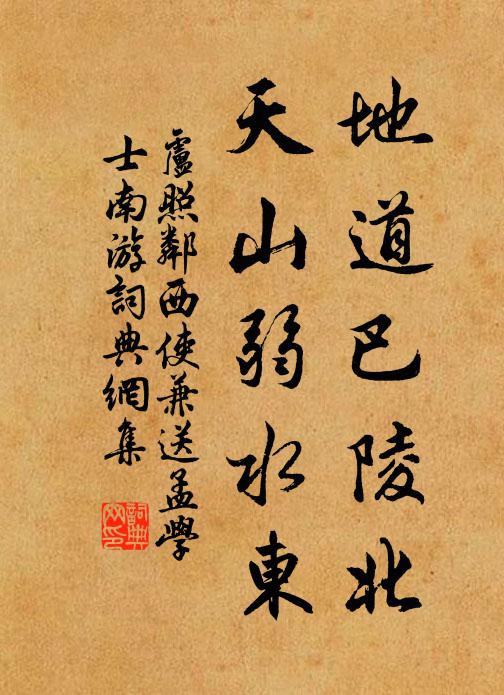 地道巴陵北
天山弱水東
盧照鄰西使兼送孟學
士南游詞典網集
詞典
网印